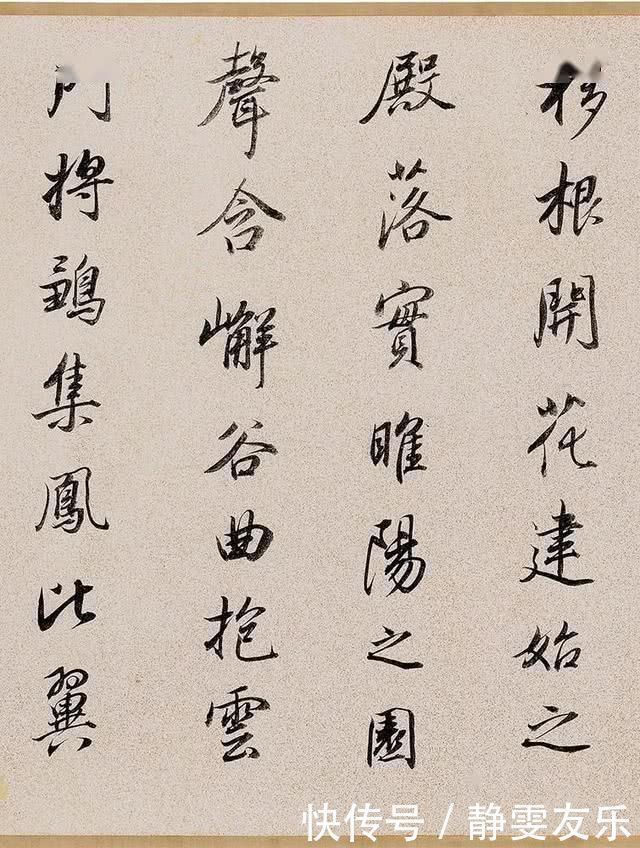 移根開花建始之
殿落實睢陽之園
聲含嶰谷曲抱雲
門將鶵集鳳比翼
快传号 / 静雯友乐